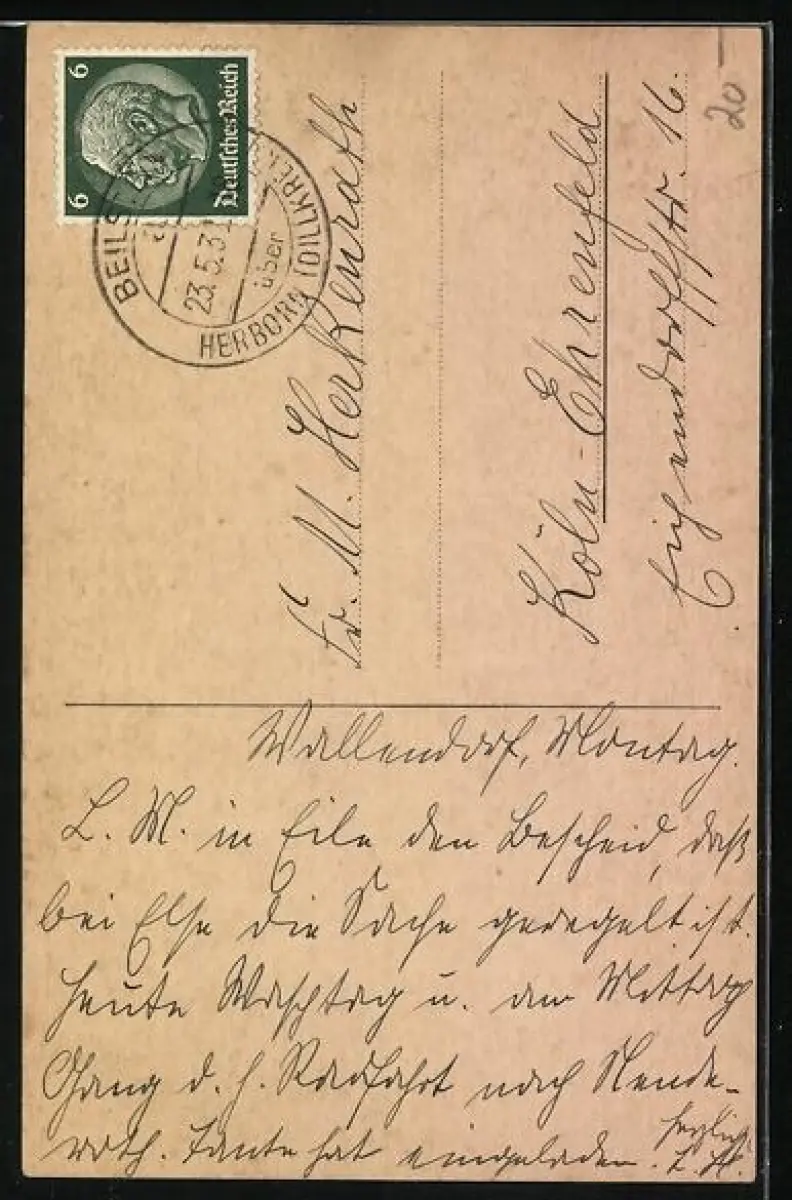 6 6
Deutsches Reich
BEILS
23.5.3
über
HERBORN (DILLKREI
20
Fr. M. Herkenrath
Köln-Ehrenfeld
Eichendorffstr. 16.
Wallendorf, Montag.
L. M. in Eile den Bescheid, daß
bei Else die Sache geregelt ist.
Heute Waschtag u. am Mittag
Gang d. h. Radfahrt nach Nende-
roth. Tante hat eingeladen. Herzlich
L. H.